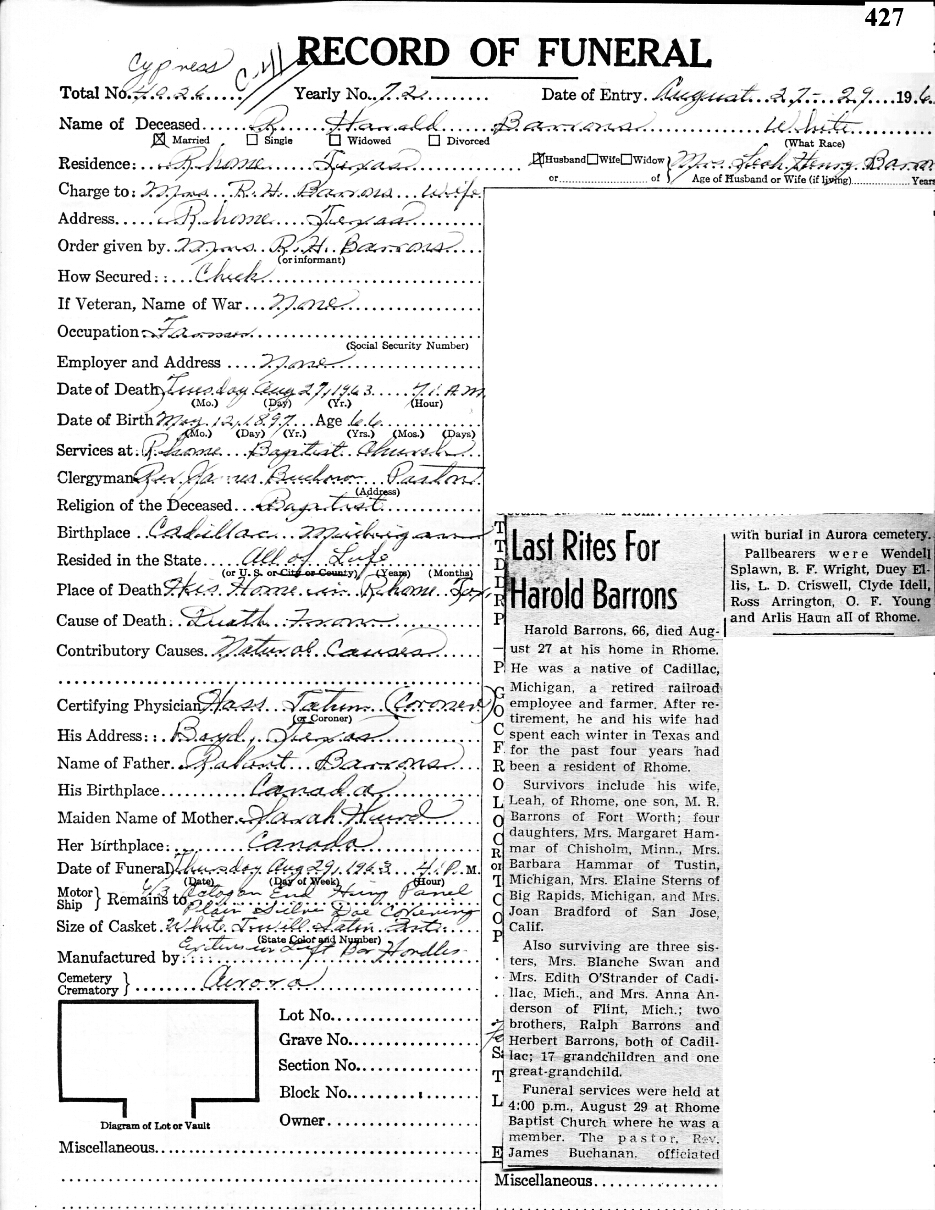 427
RECORD OF FUNERAL
Cypress
C-41
Total No. 4026 Yearly No. 72 Date of Entry August 27-29 196
Name of Deceased R Harold Barrons White
☒ Married ☐ Single ☐ Widowed ☐ Divorced (What Race)
Residence: Rhome Texas ☒ Husband ☐ Wife ☐ Widow Mrs. Leah Henry Barron
or of Age of Husband or Wife (if living) Years
Charge to: Mrs. R. H. Barrons Wife
Address Rhome Texas
Order given by Mrs. R. H. Barrons
(or informant)
How Secured: Check
If Veteran, Name of War None
Occupation Farmer
(Social Security Number)
Employer and Address None
Date of Death Tuesday Aug 27, 1963 A.M
(Mo.) (Day) (Yr.) (Hour)
Date of Birth May 12, 1897 Age 66
(Mo.) (Day) (Yr.) (Yrs.) (Mos.) (Days)
Services at: Rhome Baptist Church
Clergyman Rev. James Pastor
(Address)
Religion of the Deceased Baptist
Birthplace Cadillac Michigan
Resided in the State All of Life
(or U. S. or City or County) (Years) (Months)
Place of Death His Home in Rhome Tex
Cause of Death: Death From
Contributory Causes Natural Causes
Certifying Physician Hass Tatum (Coroner)
(or Coroner)
His Address: Boyd, Texas
Name of Father Robert Barrons
His Birthplace Canada
Maiden Name of Mother Sarah Hurd
Her birthplace: Canada
Date of Funeral Thursday Aug 29, 1963 4 P. M.
(Date) (Day of Week) (Hour)
Motor
Ship } Remains to 6/3 Octagon End Hing Panel
Plain Silver Doe Covering
Size of Casket White Twill Satin
(State Color and Number)
Manufactured by: Lift Bar Handles
Cemetery
Crematory } Aurora
Lot No.
Grave No.
Section No.
Block No.
Owner
Diagram of Lot or Vault
Miscellaneous
Last Rites For
Harold Barrons
Harold Barrons, 66, died Aug-
ust 27 at his home in Rhome.
He was a native of Cadillac,
Michigan, a retired railroad
employee and farmer. After re-
tirement, he and his wife had
spent each winter in Texas and
for the past four years had
been a resident of Rhome.
Survivors include his wife,
Leah, of Rhome, one son, M. R.
Barrons of Fort Worth; four
daughters, Mrs. Margaret Ham-
mar of Chisholm, Minn., Mrs.
Barbara Hammar of Tustin,
Michigan, Mrs. Elaine Sterns of
Big Rapids, Michigan, and Mrs.
Joan Bradford of San Jose,
Calif.
Also surviving are three sis-
ters, Mrs. Blanche Swan and
Mrs. Edith O'Strander of Cadi-
llac, Mich., and Mrs. Anna An-
derson of Flint, Mich.; two
brothers, Ralph Barrons and
Herbert Barrons, both of Cadil-
lac; 17 grandchildren and one
great-grandchild.
Funeral services were held at
4:00 p.m., August 29 at Rhome
Baptist Church where he was a
member. The pastor, Rev.
James Buchanan, officiated
with burial in Aurora cemetery.
Pallbearers were Wendell
Splawn, B. F. Wright, Duey El-
lis, L. D. Criswell, Clyde Idell,
Ross Arrington, O. F. Young
and Arlis Haun all of Rhome.
Miscellaneous